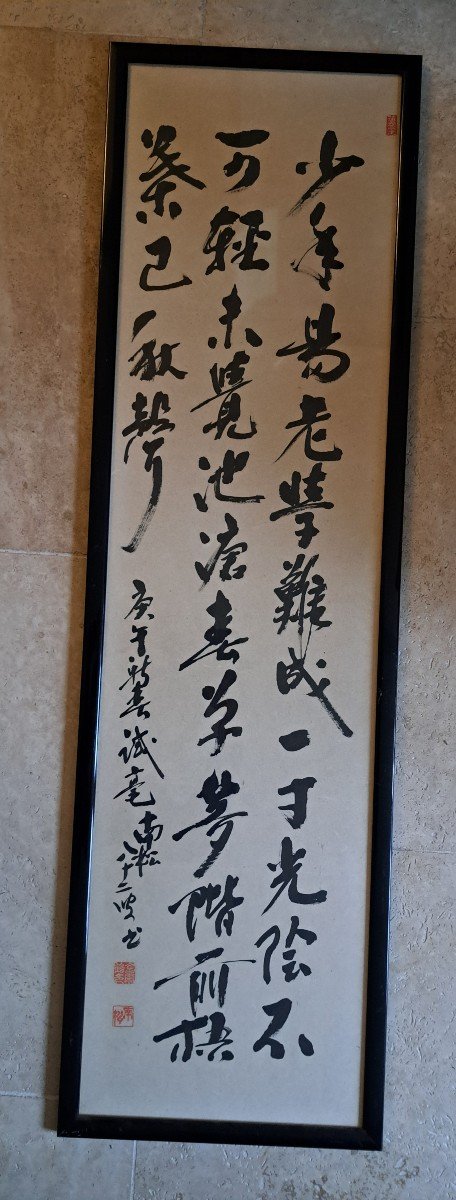 少年易老學難成一寸光陰不
可輕未覺池塘春草夢階前梧
葉已秋聲
庚午新春試毫南松八十二叟書